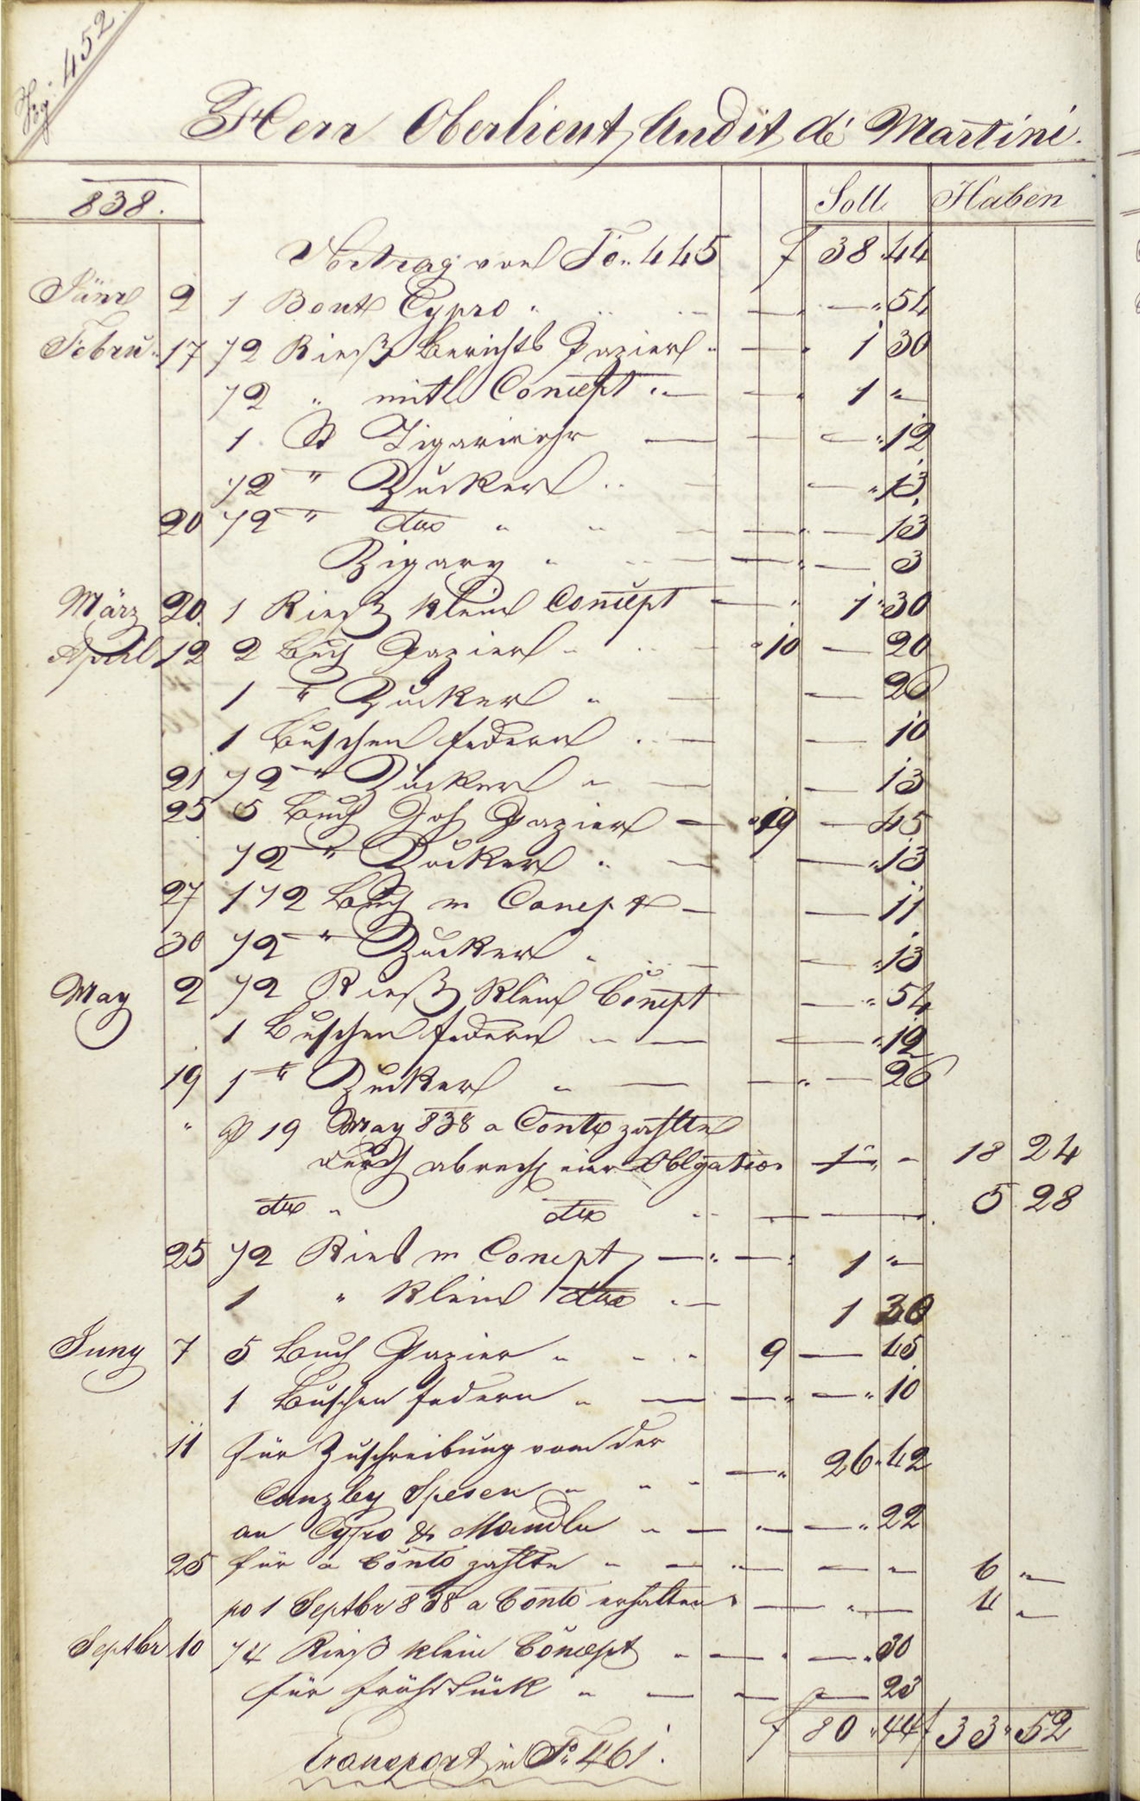 452
Herr Oberlieut Audit de Martini.
838. Soll Haben
Vortrag von Fo. 445 f 38 44
Jäner 9 1 Bout Cypro — 54
Febru 17 1/2 Rieß Berichts Papier 1 30
1/2 " mitl Concept 1 "
1 Zigarirohr — 12
1/2 " Zucker — 13
20 1/2 " dto — 13
Zigary — 3
März 20. 1 Rieß klein Concept 1 30
April 12 2 Buch Papier 10 — 20
1 " Zucker — 26
1 Buschen federn — 10
21 1/2 " Zucker — 13
25 5 Buch Papier 9 — 45
1/2 " Zucker — 13
27 1 1/2 Buch m Concept — 11
30 1/2 " Zucker — 13
May 2 1/2 Rieß klein Concept — 54
1 Buschen federn — 12
19 1 " Zucker — 26
" p 19 May 838 a Conto zahlte
durch abrech einer Obligation 18 24
dto " dto 5 28
25 1/2 Ries m Concept 1 "
1 " klein dto 1 30
Juny 7 5 Buch Papier 9 — 45
1 Buschen federn — 10
11 für Zuschreibung von der
Canzley Spesen 26 42
an Cypro & Mandln — 22
25 für a Conto zahlte 6 "
po 1 Septbr 838 a Conto erhalten 4 "
Septbr 10 1/4 Rieß klein Concept — 30
für Frühstück — 23
f 80 44 f 33 52
Transport in Fo 461.